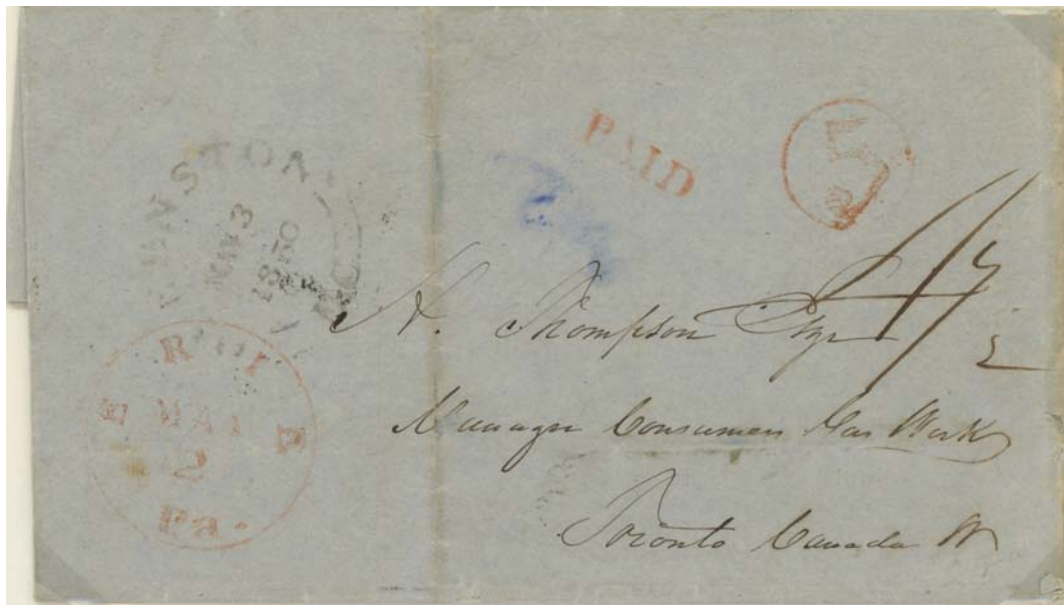 PAID
5
MAY 3
1850
ERIE
MAY
2
Pa.
N. Thompson Esqr
Manager Consumers Gas Works
Toronto Canada W